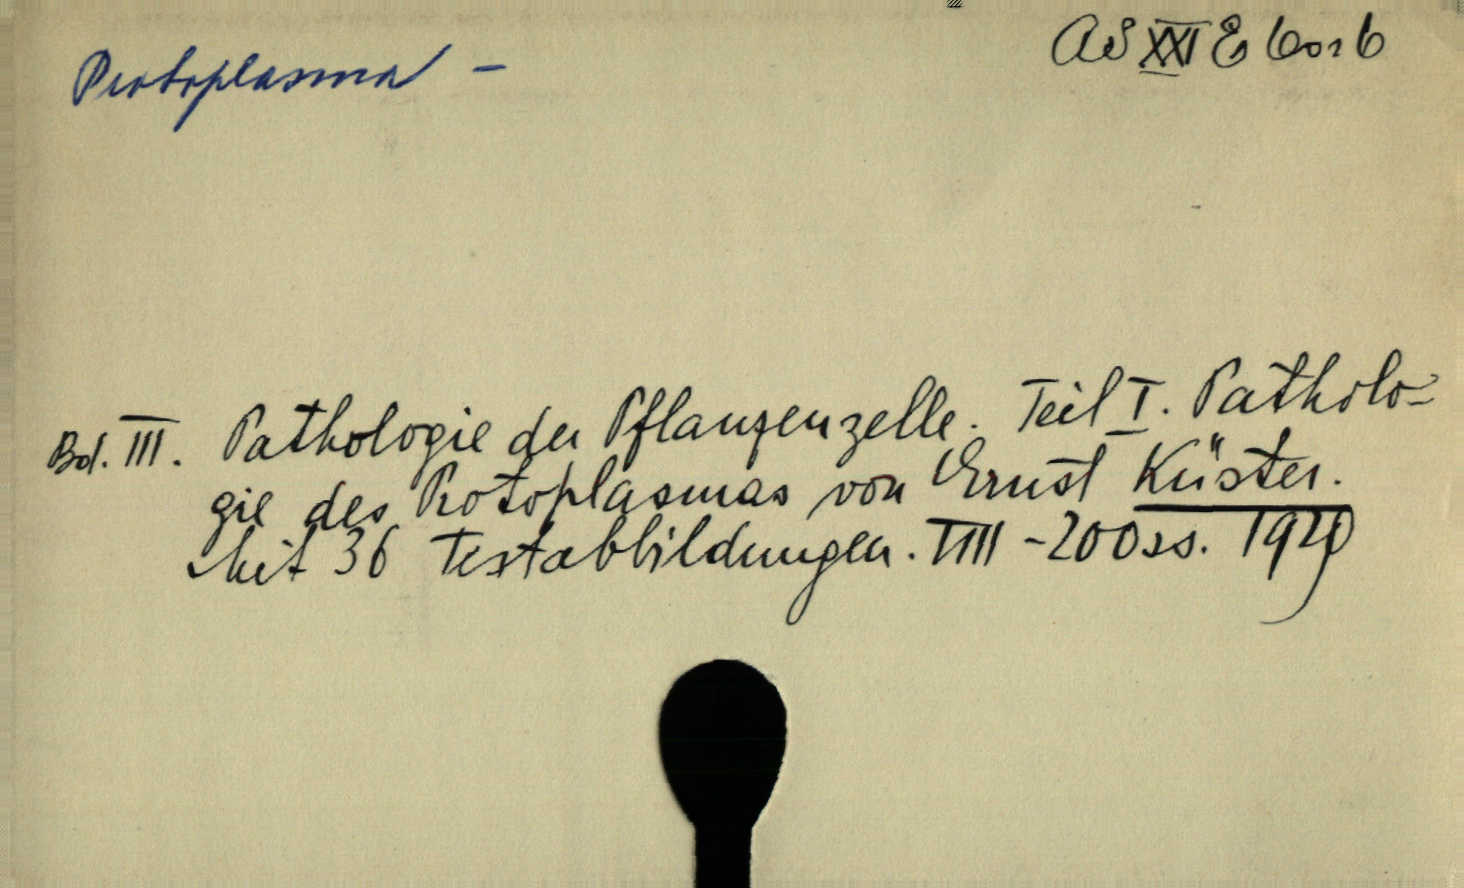 Protoplasma —
AS XXI E 6os 6
Bd. III. Pathologie der Pflanzenzelle. Teil I. Patholo-
gie des Protoplasmas von Ernst Küster.
Mit 36 Textabbildungen. VIII - 200 ss. 1929